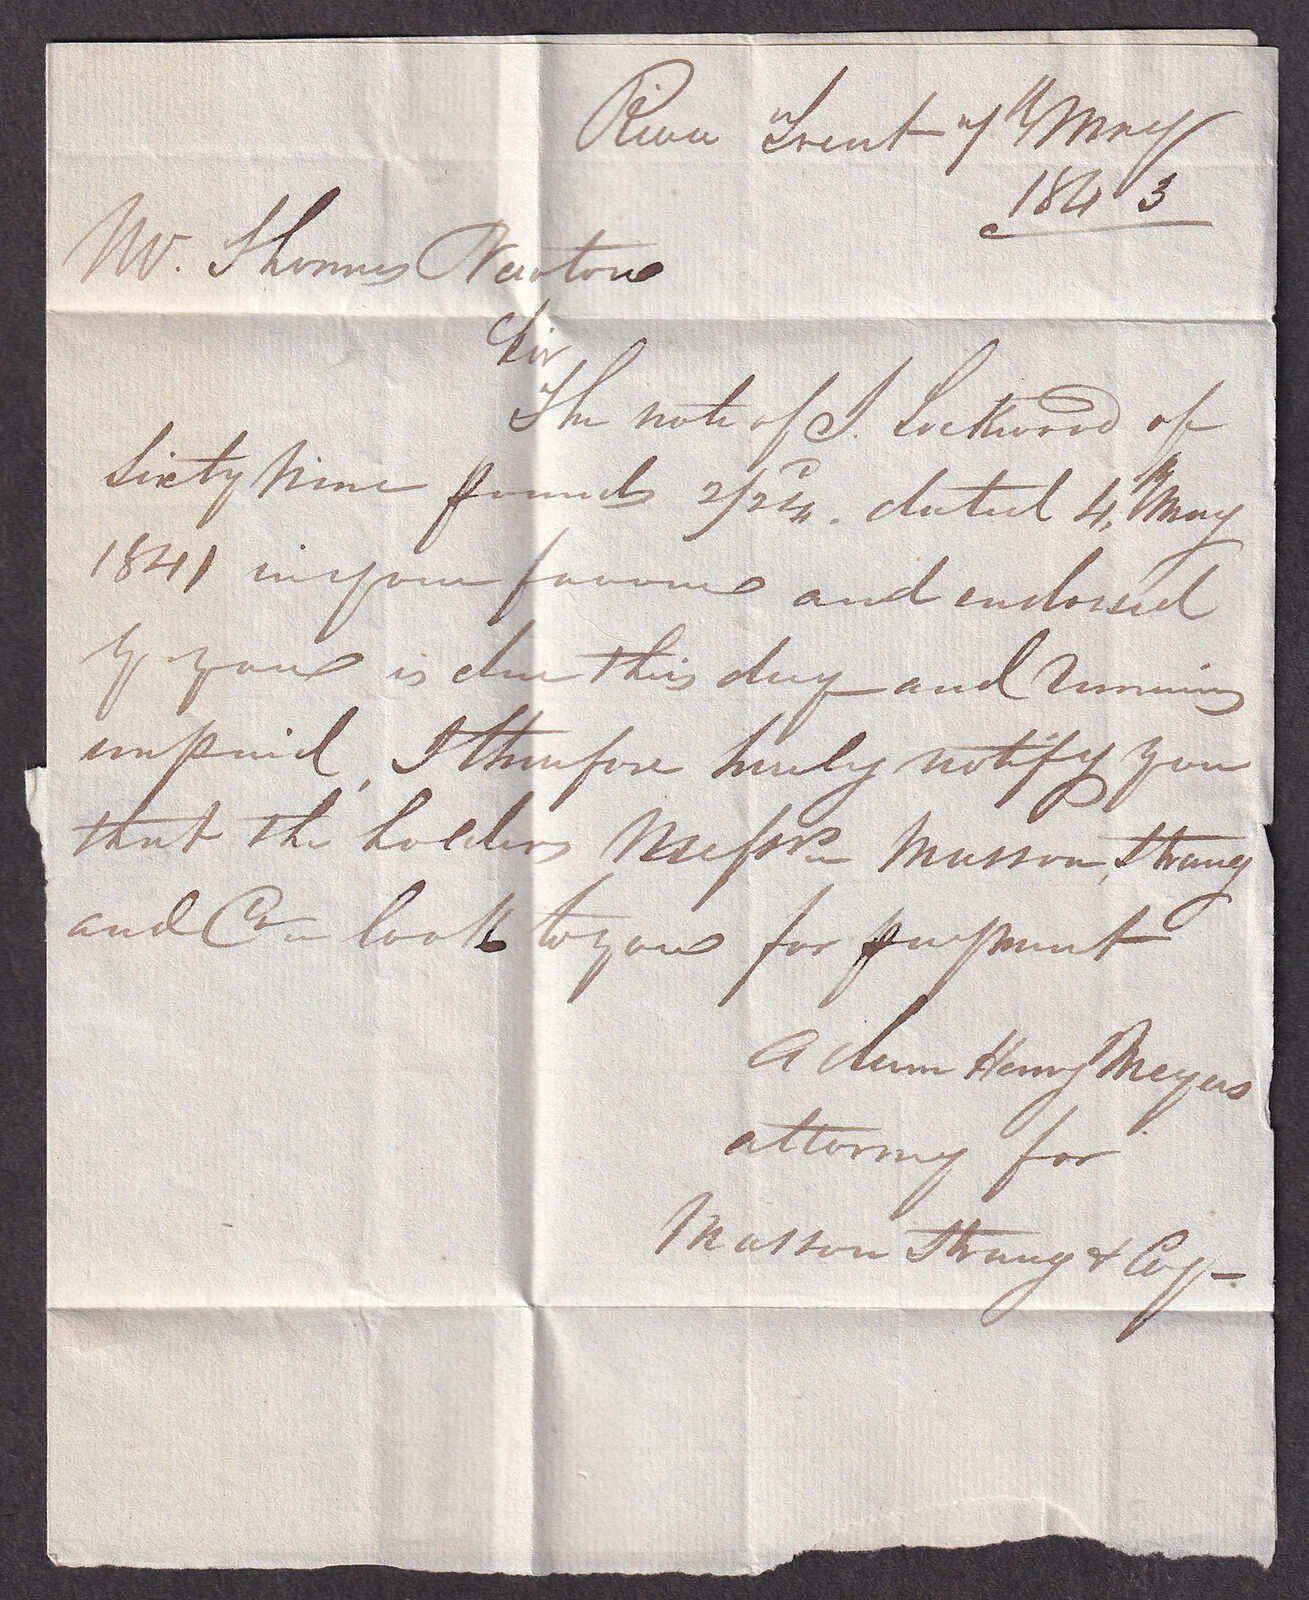 River Trent 7th May
1843
Mr. Thomas Newton
Sir
The note of J. Lockwood of
Sixty Nine pounds 2/2d. dated 4th May
1841 in your favour and endorsed
by you is due this day and remains
unpaid, I therefore hereby notify you
that the holders Messrs Masson, Strang
and Co look to you for payment
Adam Henry Meyers
attorney for
Masson Strang & Coy-